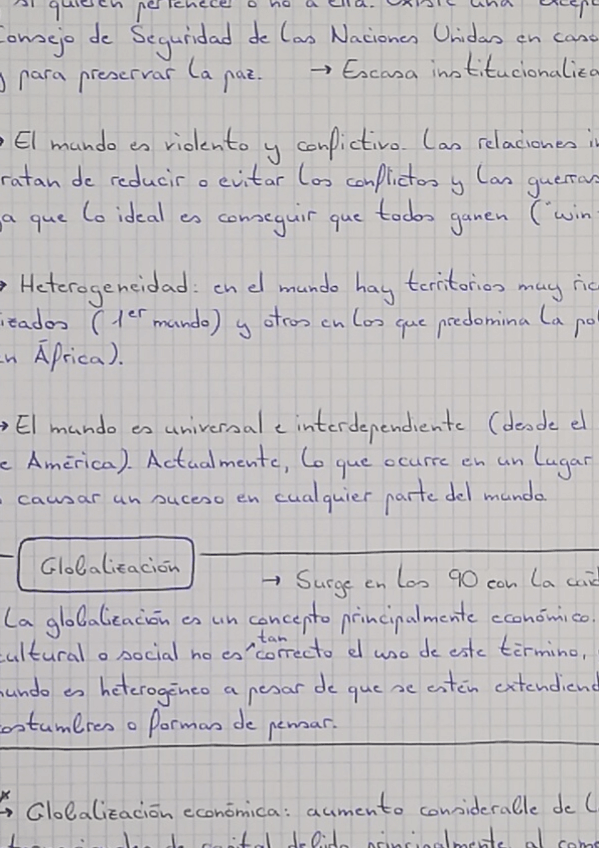 si quieren pertenecer o no a ella. Existe una
Consejo de Seguridad de las Naciones Unidas en caso
para preservar la paz. → Escasa institucionaliza
→ El mundo es violento y conflictivo. Las relaciones in
ratan de reducir o evitar los conflictos y las guerras
a que lo ideal es conseguir que todos ganen ("win
→ Heterogeneidad: en el mundo hay territorios muy ric
izados (1er mundo) y otros en los que predomina la po
n África).
→ El mundo es universal e interdependiente (desde el
e América). Actualmente, lo que ocurre en un lugar
causar un suceso en cualquier parte del mundo.
Globalización
→ Surge en los 90 con la caíd
La globalización es un concepto principalmente económico.
cultural o social no es tan correcto el uso de este término,
mundo es heterogéneo a pesar de que se estén extendiend
costumbres o formas de pensar.
* → Globalización económica: aumento considerable de l
de capital debido principalmente al